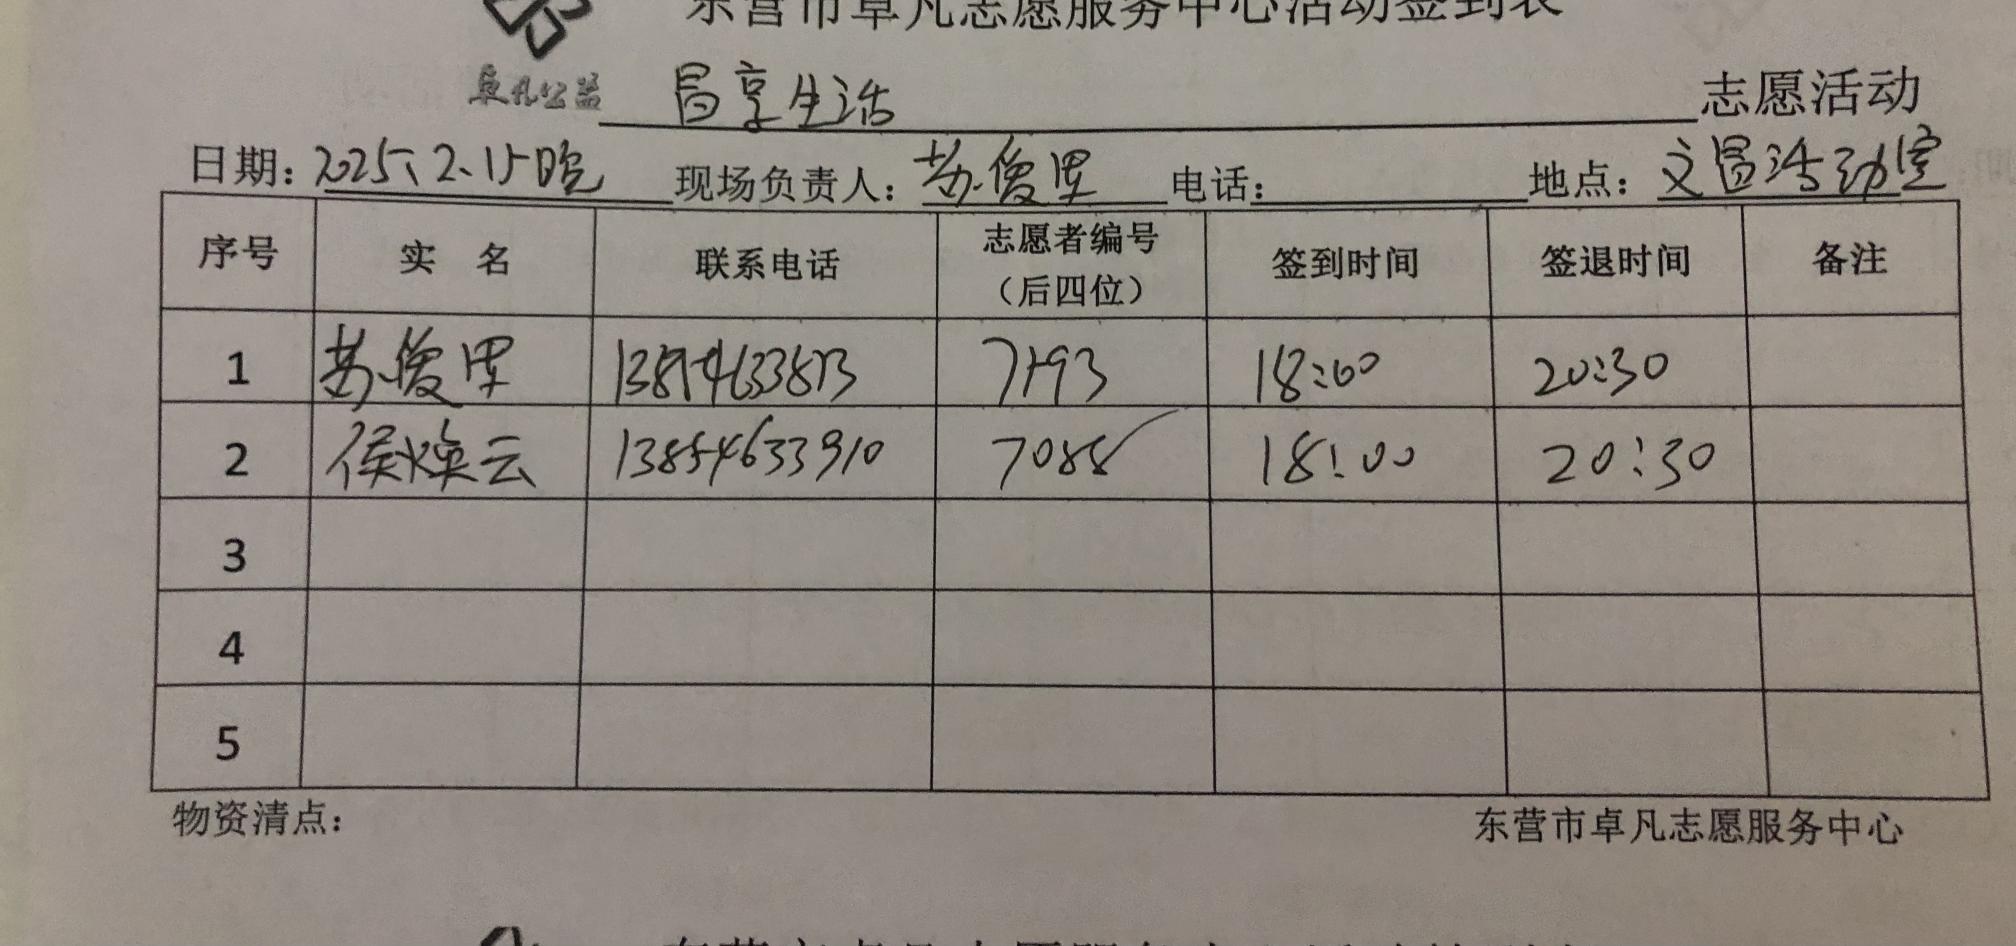 东营市卓凡志愿服务中心活动签到表
卓凡公益 昌享生活 志愿活动
日期：2025.2.15晚 现场负责人：苏俊里 电话： 地点：文昌活动室
序号 实 名 联系电话 志愿者编号（后四位） 签到时间 签退时间 备注
1 苏俊里 7193 18:00 20:30
2 侯焕云 13854633910 7088 18:00 20:30
3
4
5
物资清点： 东营市卓凡志愿服务中心